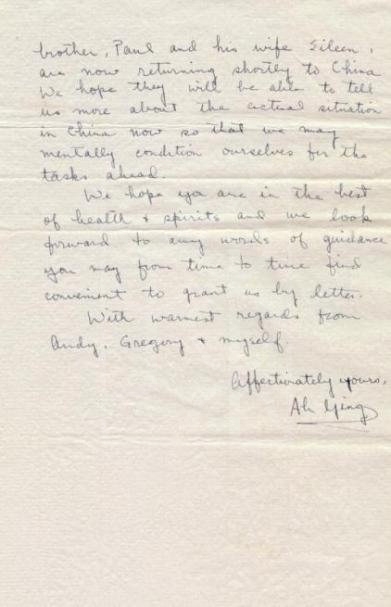 brother, Paul and his wife Eileen,
are now returning shortly to China
We hope they will be able to tell
us more about the actual situation
in China now so that we may
mentally condition ourselves for the
tasks ahead.
We hope you are in the best
of health & spirits and we look
forward to any words of guidance
you may from time to time find
convenient to grant us by letter.
With warmest regards from
Andy, Gregory & myself.
Affectionately yours,
Ah Ying